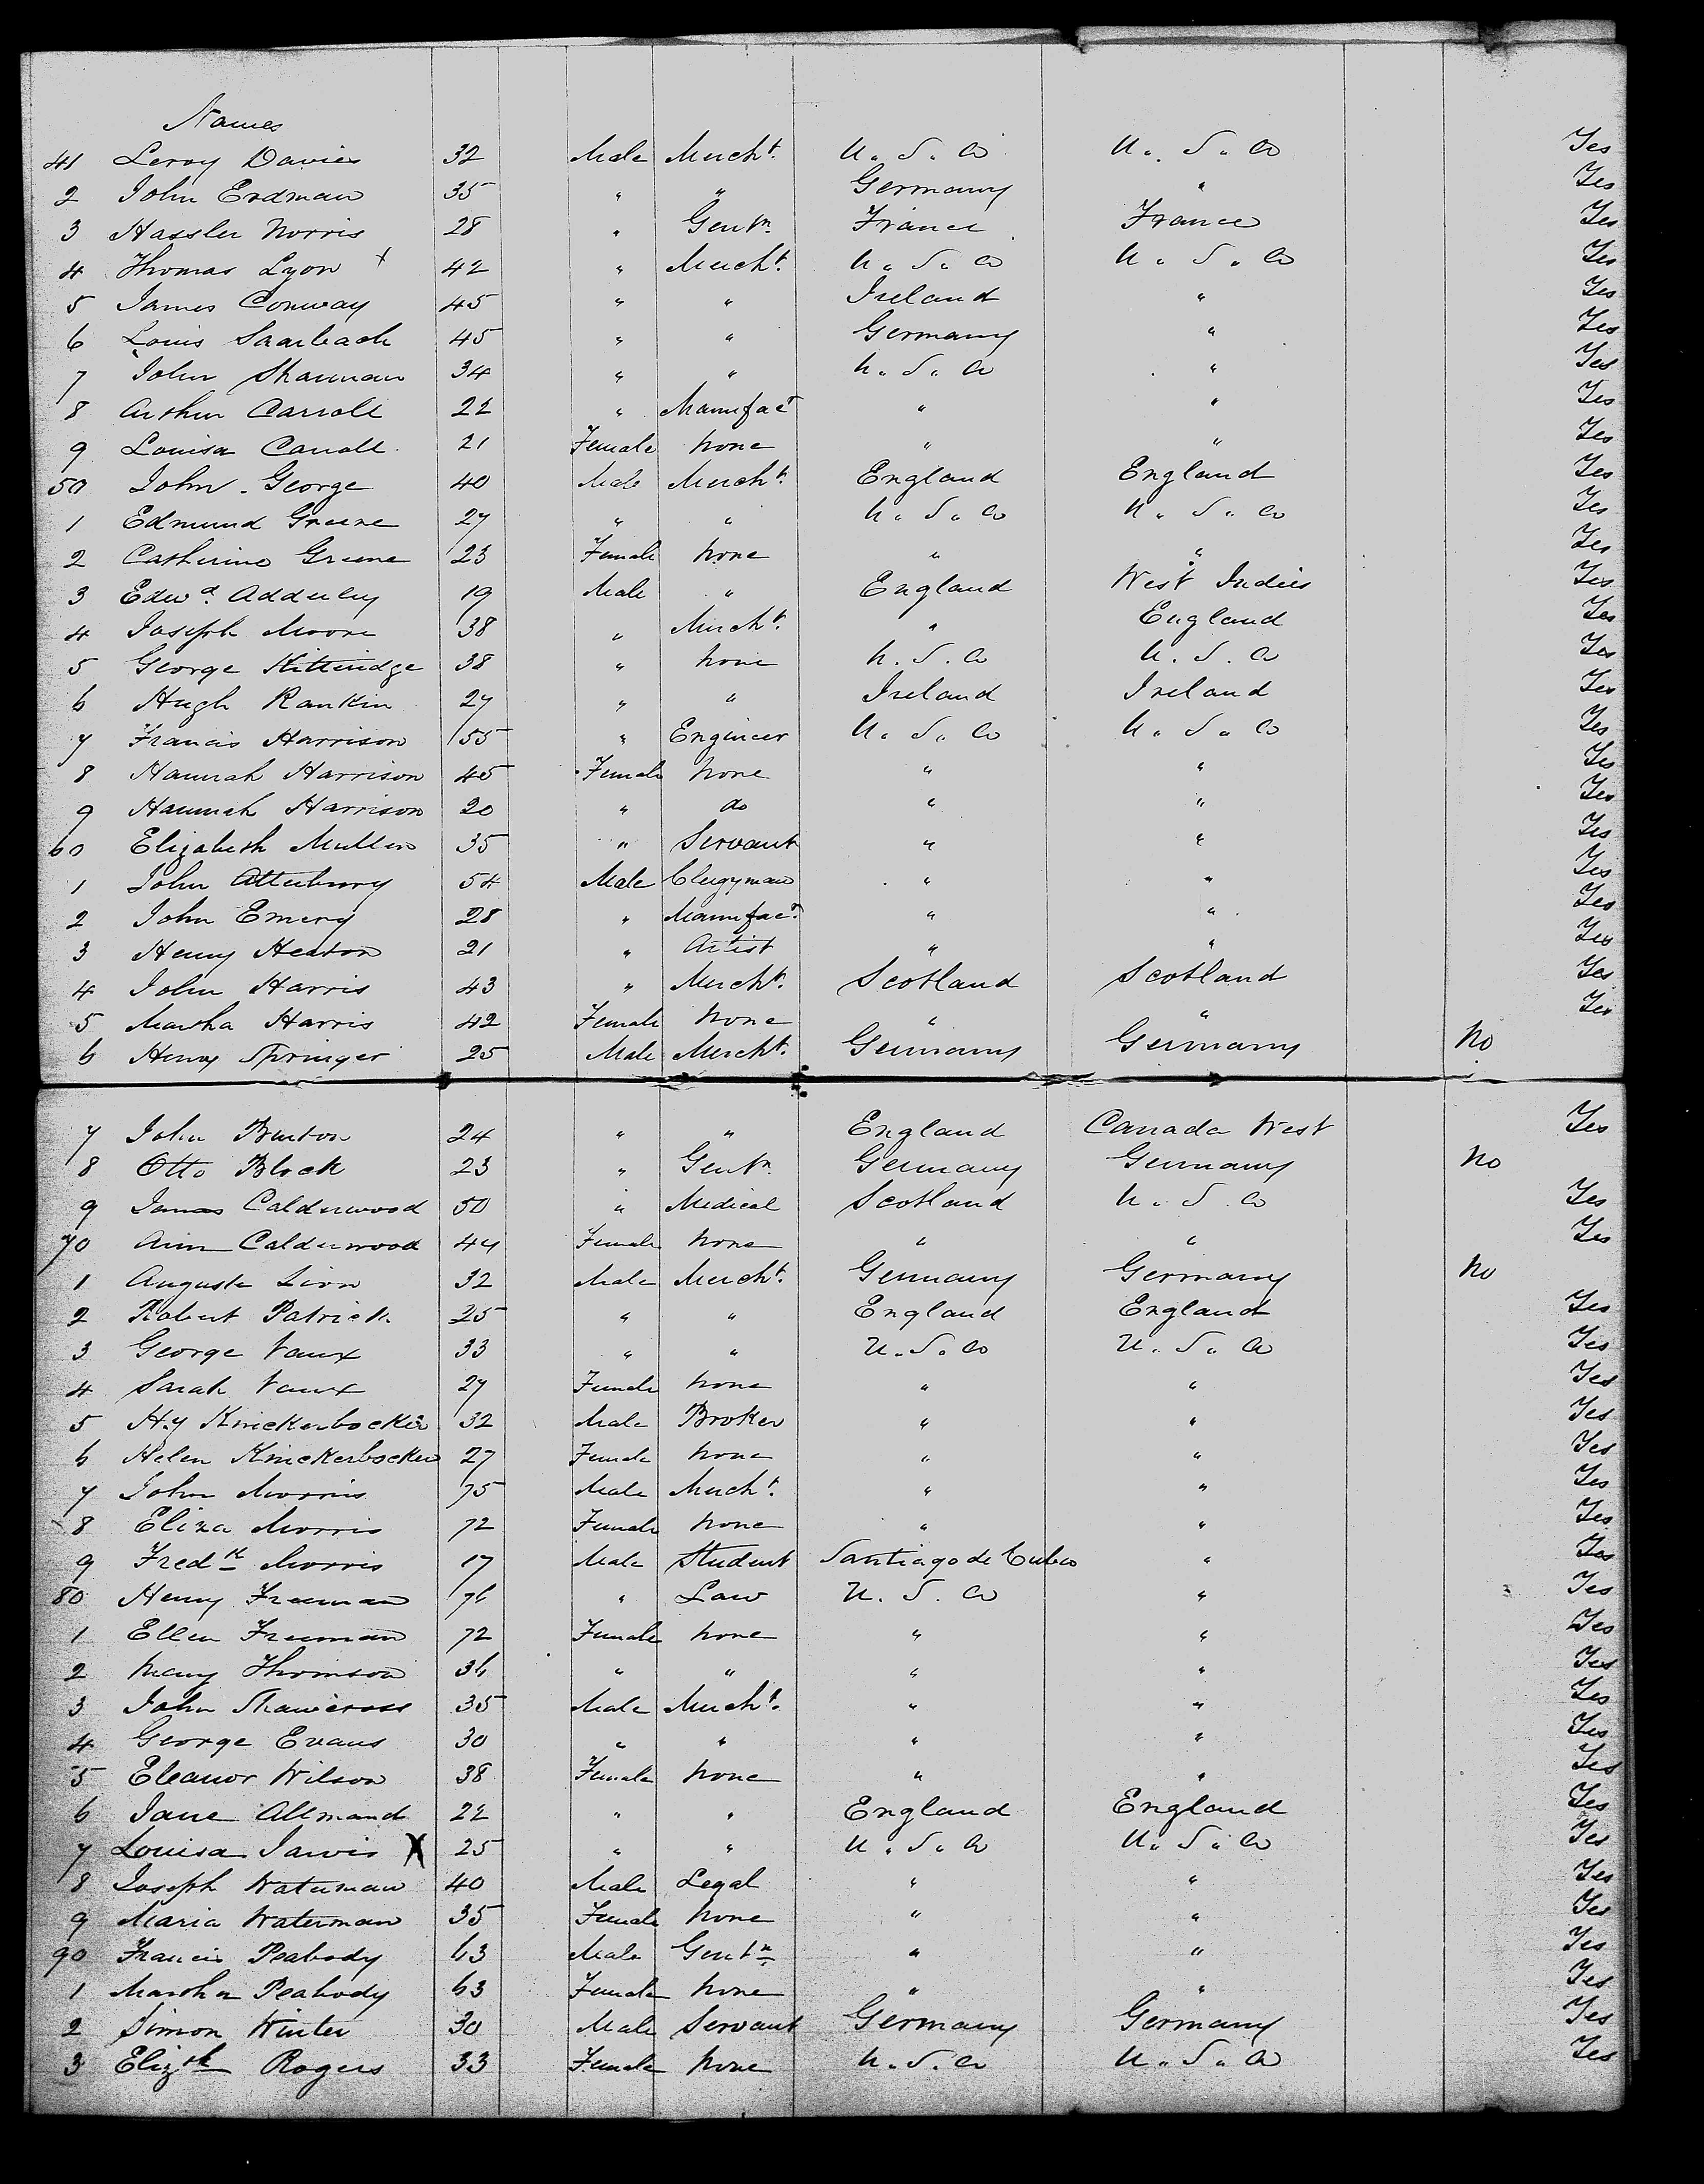 Names
41 Leroy Davies 32 Male Mercht. U. S. A Yes U. S. A
2 John Erdman 35 " " Germany " Yes
3 Hassler Norris 28 " Gentn. France France Yes
4 Thomas Lyon x 42 " Mercht. U. S. A U. S. A Yes
5 James Conway 45 " " Ireland " Yes
6 Louis Saarbach 45 " " Germany " Yes
7 John Shannan 34 " " U. S. A " Yes
8 Arthur Carroll 22 " Manufact " " Yes
9 Louisa Carroll 21 Female None " " Yes
50 John George 40 Male Mercht. England England Yes
1 Edmund Greene 27 " " U. S. A U. S. A Yes
2 Catherine Greene 23 Female None " " Yes
3 Edwd. Adderley 19 Male " England West Indies Yes
4 Joseph Moore 38 " Mercht. " England Yes
5 George Kitteridge 38 " None U. S. A U. S. A Yes
6 Hugh Rankin 27 " " Ireland Ireland Yes
7 Francis Harrison 55 " Engineer U. S. A U. S. A Yes
8 Hannah Harrison 45 Female None " " Yes
9 Hannah Harrison 20 " do " " Yes
60 Elizabeth Mullen 35 " Servant " " Yes
1 John Atterbury 54 Male Clergyman " " Yes
2 John Emery 28 " Manufact. " " Yes
3 Henry Heaton 21 " Artist " " Yes
4 John Harris 43 " Mercht. Scotland Scotland Yes
5 Martha Harris 42 Female None " " Yes
6 Henry Springer 25 Male Mercht. Germany Germany No
7 John Burton 24 " " England Canada West Yes
8 Otto Block 23 " Gentn. Germany Germany No
9 James Calderwood 50 " Medical Scotland U. S. A Yes
70 Ann Calderwood 44 Female None " " Yes
1 Auguste Lion 32 Male Mercht. Germany Germany No
2 Robert Patrick 25 " " England England Yes
3 George Vaux 33 " " U. S. A U. S. A Yes
4 Sarah Vaux 27 Female None " " Yes
5 Hy Knickerbocker 32 Male Broker " " Yes
6 Helen Knickerbocker 27 Female None " " Yes
7 John Morris 75 Male Mercht. " " Yes
8 Eliza Morris 72 Female None " " Yes
9 Fredk Morris 17 Male Student Santiago de Cuba " Yes
80 Henry Freeman 76 " Law U. S. A " Yes
1 Ellen Freeman 72 Female None " " Yes
2 Mary Thomson 36 " " " " Yes
3 John Shawcross 35 Male Mercht. " " Yes
4 George Evans 30 " " " " Yes
5 Eleanor Wilson 38 Female None " " Yes
6 Jane Allmand 22 " " England England Yes
7 Louisa Jarvis X 25 " " U. S. A U. S. A Yes
8 Joseph Waterman 40 Male Legal " " Yes
9 Maria Waterman 35 Female None " " Yes
90 Francis Peabody 63 Male Gentn. " " Yes
1 Martha Peabody 63 Female None " " Yes
2 Simon Winter 30 Male Servant Germany Germany Yes
3 Elizth Rogers 33 Female None U. S. A U. S. A Yes